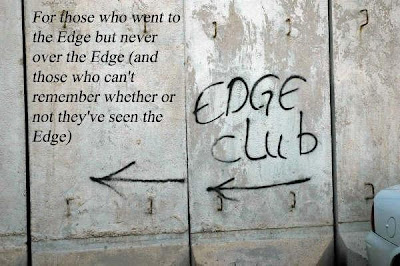 For those who went to
the Edge but never
over the Edge (and
those who can't
remember whether or
not they've seen the
Edge)
EDGE
club